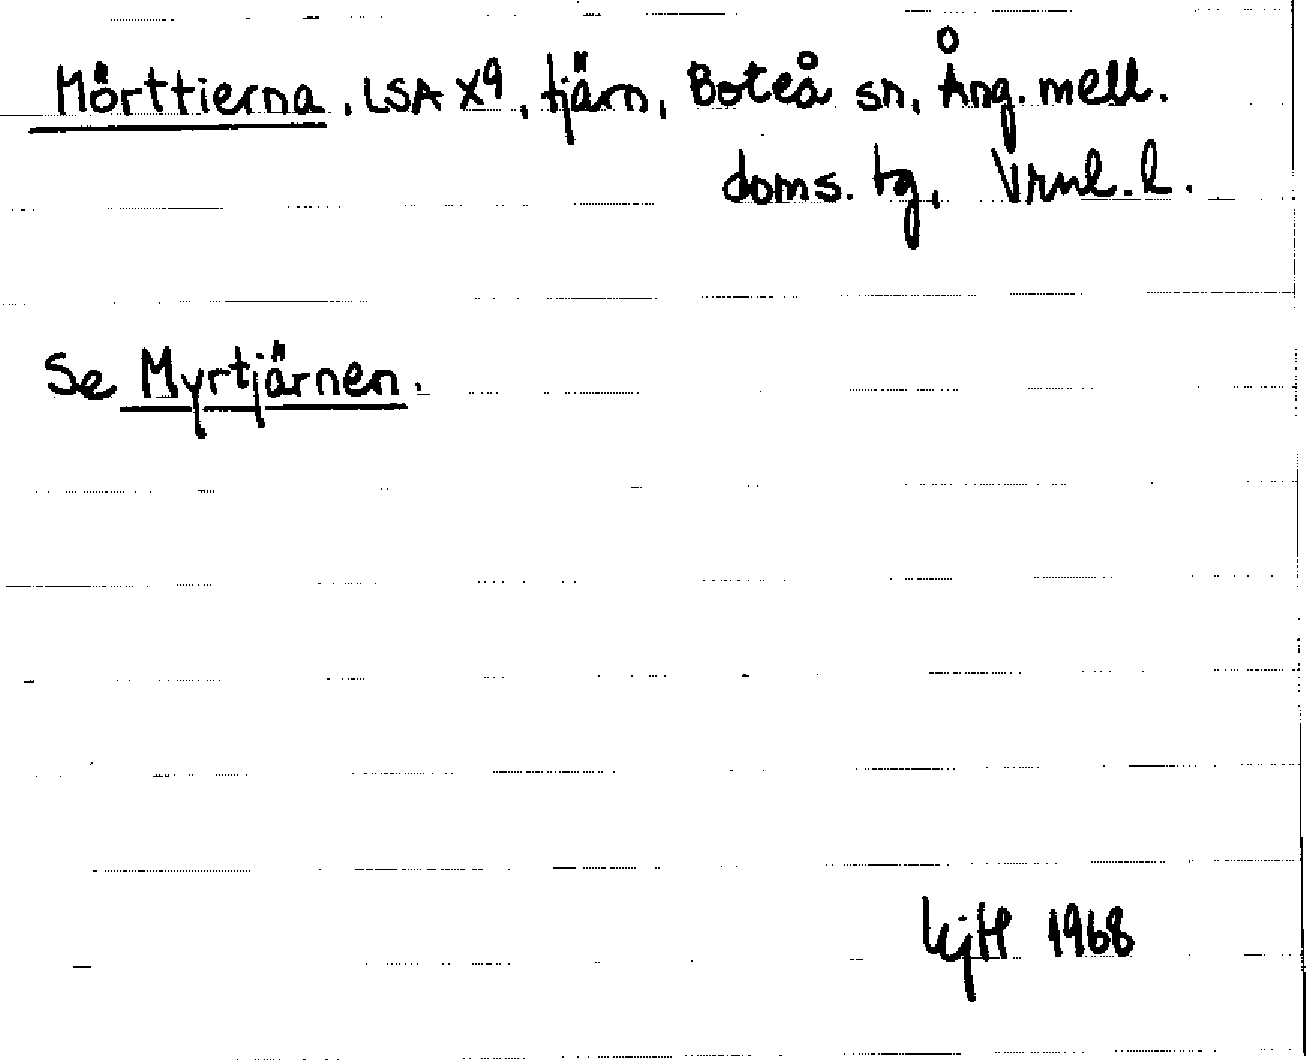 Mörttierna, LSA X9, tjärn, Boteå sn, Ång. mell.
doms. tg, Vrnl. l.
Se Myrtjärnen.
1968